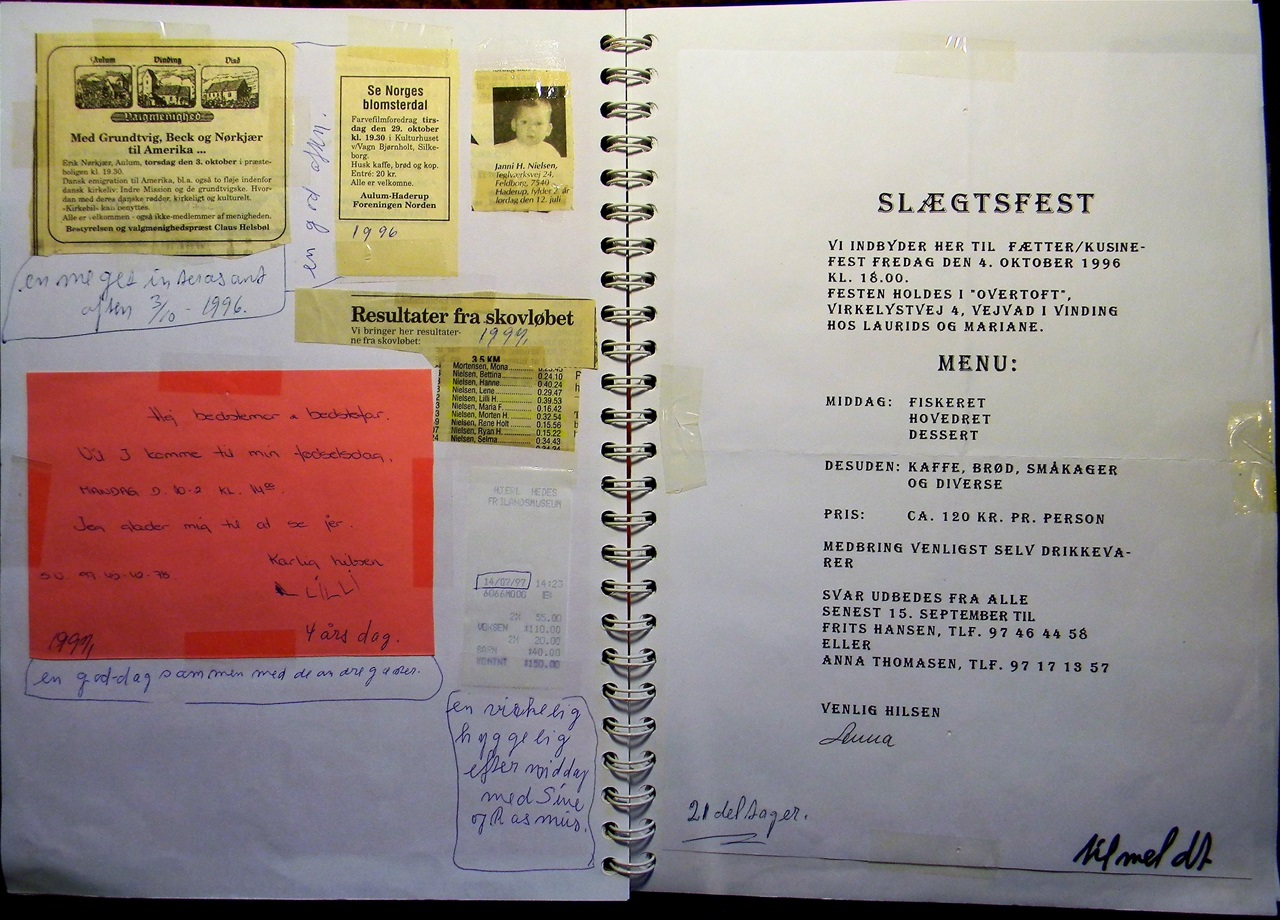 Aulum Vinding Vind
Valgmenighed
Med Grundtvig, Beck og Nørkjær
til Amerika ...
Erik Nørkjær, Aulum, torsdag den 3. oktober i præste-
boligen kl. 19.30.
Dansk emigration til Amerika, bl.a. også to fløje indenfor
dansk kirkeliv: Indre Mission og de grundtvigske. Hvor-
dan med deres danske rødder, kirkeligt og kulturelt.
-Kirkebil- kan benyttes.
Alle er velkommen - også ikke-medlemmer af menigheden.
Bestyrelsen og valgmenighedspræst Claus Helsbøl
en meget interasant
aften 3/10 - 1996.
en god aften.
Se Norges
blomsterdal
Farvefilmforedrag tirs-
dag den 29. oktober
kl. 19.30 i Kulturhuset
v/Vagn Bjørnholt, Silke-
borg.
Husk kaffe, brød og kop.
Entré: 20 kr.
Alle er velkomne.
Aulum-Haderup
Foreningen Norden
1996
Janni H. Nielsen,
Teglværksvej 24,
Feldborg, 7540
Haderup, fylder 2 år
lørdag den 12. juli
Resultater fra skovløbet
Vi bringer her resultater-
ne fra skovløbet:
1997,
3,5 KM
Mortensen, Mona
Nielsen, Bettina 0.24.10
Nielsen, Hanne 0.40.24
Nielsen, Lene 0.29.47
Nielsen, Lilli H. 0.39.53
Nielsen, Maria F. 0.16.42
Nielsen, Morten H. 0.32.54
Nielsen, Rene Holt 0.15.56
Nielsen, Ryan H. 0.15.22
Nielsen, Selma 0.34.43
Hej bedstemor & bedstefar.
Vil I komme til min fødselsdag.
MANDAG D. 10-2 KL. 14⁰⁰
Jeg glæder mig til at se jer.
Kærlig hilsen
LILLI
S.U. 97-45-40-78.
4 års dag.
1997,
en god-dag sammen med de andre gæster.
HJERL HEDES
FRILANDSMUSEUM
14/07/97 14:23
2X 55.00
VOKSEN $110.00
2X 20.00
BARN $40.00
KONTNT $150.00
en virkelig
hyggelig
eftermiddag
med Sine
og Rasmus.
SLÆGTSFEST
VI INDBYDER HER TIL FÆTTER/KUSINE-
FEST FREDAG DEN 4. OKTOBER 1996
KL. 18.00.
FESTEN HOLDES I "OVERTOFT",
VIRKELYSTVEJ 4, VEJVAD I VINDING
HOS LAURIDS OG MARIANE.
MENU:
MIDDAG: FISKERET
HOVEDRET
DESSERT
DESUDEN: KAFFE, BRØD, SMÅKAGER
OG DIVERSE
PRIS: CA. 120 KR. PR. PERSON
MEDBRING VENLIGST SELV DRIKKEVA-
RER
SVAR UDBEDES FRA ALLE
SENEST 15. SEPTEMBER TIL
FRITS HANSEN, TLF. 97 46 44 58
ELLER
ANNA THOMASEN, TLF. 97 17 13 57
VENLIG HILSEN
Anna
21 deltager.
tilmeldt